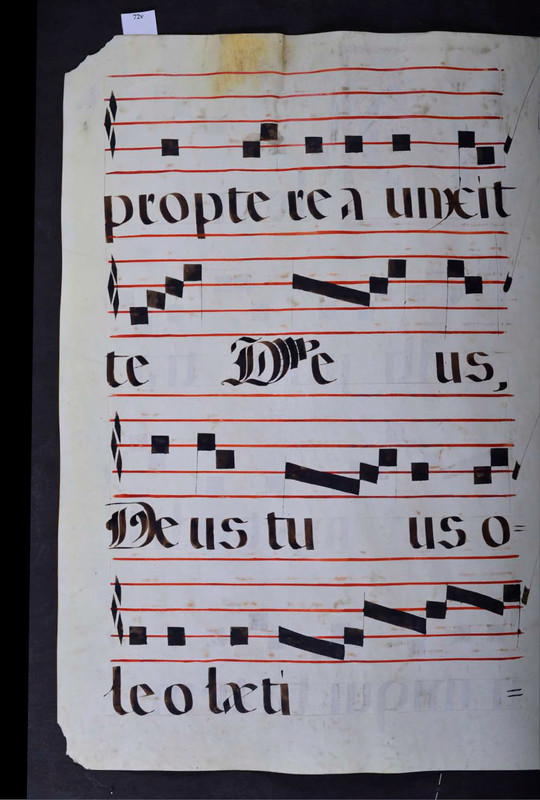 72v
propte rea unxit
te De us,
Deus tu us o=
leo læti =